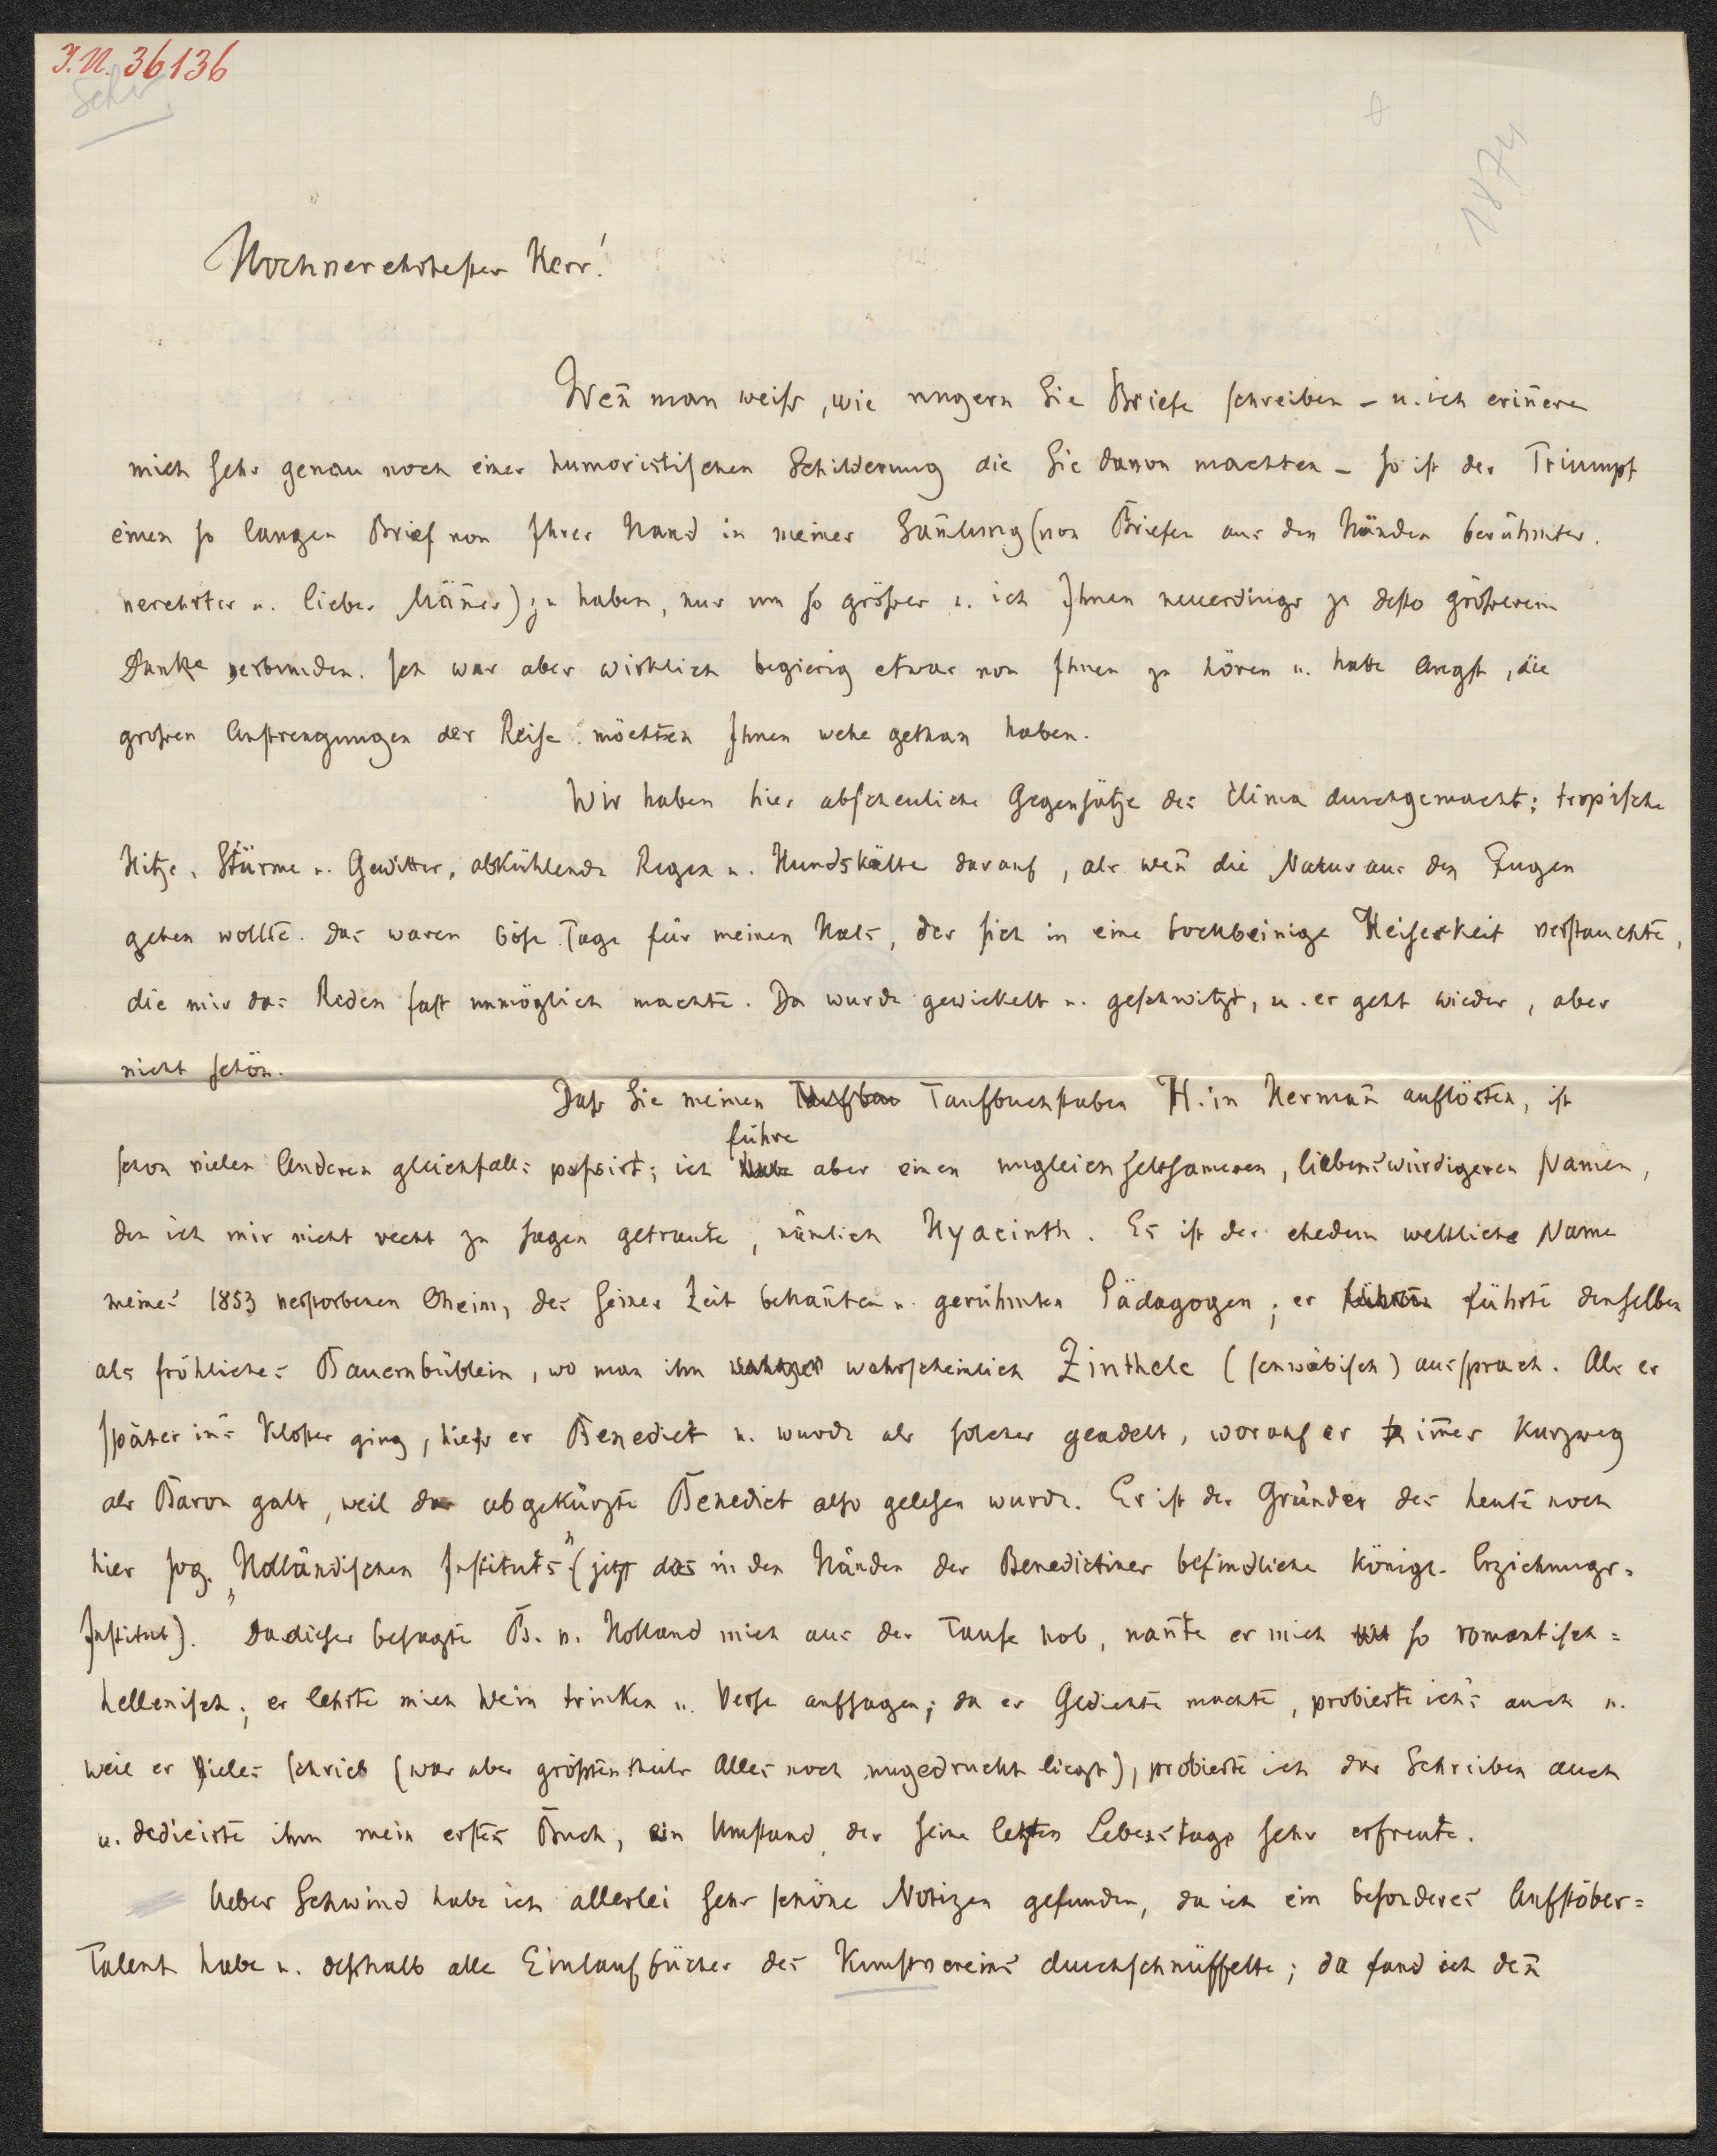 I.N. 36136
Schw
1874
Hochverehrtester Herr!
Weñ man weiß, wie ungern Sie Briefe schreiben – u. ich eriñere
mich sehr genau noch einer humoristischen Schilderung die Sie davon machten – so ist der Triumpf
einen so langen Brief von Ihrer Hand in meiner Sam̃lung (von Briefen aus den Händen berühmter,
verehrter u. lieber Mäñer) zu haben, nur um so größer u. ich Ihnen neuerdings zu desto größerem
Danke verbunden. Ich war aber wirklich begierig etwas von Ihnen zu hören u. hatte Angst, die
großen Anstrengungen der Reise möchten Ihnen wehe gethan haben.
Wir haben hier abscheuliche Gegensätze des Clima durchgemacht; tropische
Hitze, Stürme u. Gewitter, abkühlende Regen u. Hundskälte darauf, als weñ die Natur aus den Fugen
gehen wollte. Das waren böse Tage für meinen Hals, der sich in eine bockbeinige Heiserkeit verstauchte,
die mir das Reden fast unmöglich machte. Da wurde gewickelt u. geschwitzt, u. es geht wieder, aber
nicht schön.
Daß Sie meinen Taufbuchstaben H. in Hermañ auflösten, ist
schon vielen Anderen gleichfalls paßirt; ich führe aber einen ungleich seltsameren, liebenswürdigeren Namen,
den ich mir nicht recht zu sagen getraute, nämlich Hyacinth. Es ist der ehedem weltliche Name
meines 1853 verstorbenen Oheim, des seiner Zeit bekañten u. gerühmten Pädagogen; er führte denselben
als fröhliches Bauernbüblein, wo man ihn wahrscheinlich Zinthele (schwäbisch) aussprach. Als er
später in's Kloster ging, hieß er Benedict u. wurde als solcher geadelt, worauf er im̃er kurzweg
als Baron galt, weil das abgekürzte Benedict also gelesen wurde. Er ist der Gründer des heute noch
hier sog. „Holländischen Instituts" (jetzt das in den Händen der Benedictiner befindliche Königl. Erziehungs=
Institut). Da dieser besagte B. v. Holland mich aus der Taufe hob, nañte er mich so romantisch=
hellenisch; er lehrte mich Wein trinken u. Verse aufsagen; da er Gedichte machte, probierte ich's auch u.
weil er Vieles schrieb (was aber größtentheils Alles noch ungedruckt liegt), probierte ich das Schreiben auch
u. dedicirte ihm mein erstes Buch, ein Umstand, der seine letzten Lebenstage sehr erfreute.
Ueber Schwind habe ich allerlei sehr schöne Notizen gefunden, da ich ein besonderes Aufstöber=
Talent habe u. deßhalb alle Einlaufbücher des Kunstvereins durchschnüffelte; da fand ich deñ